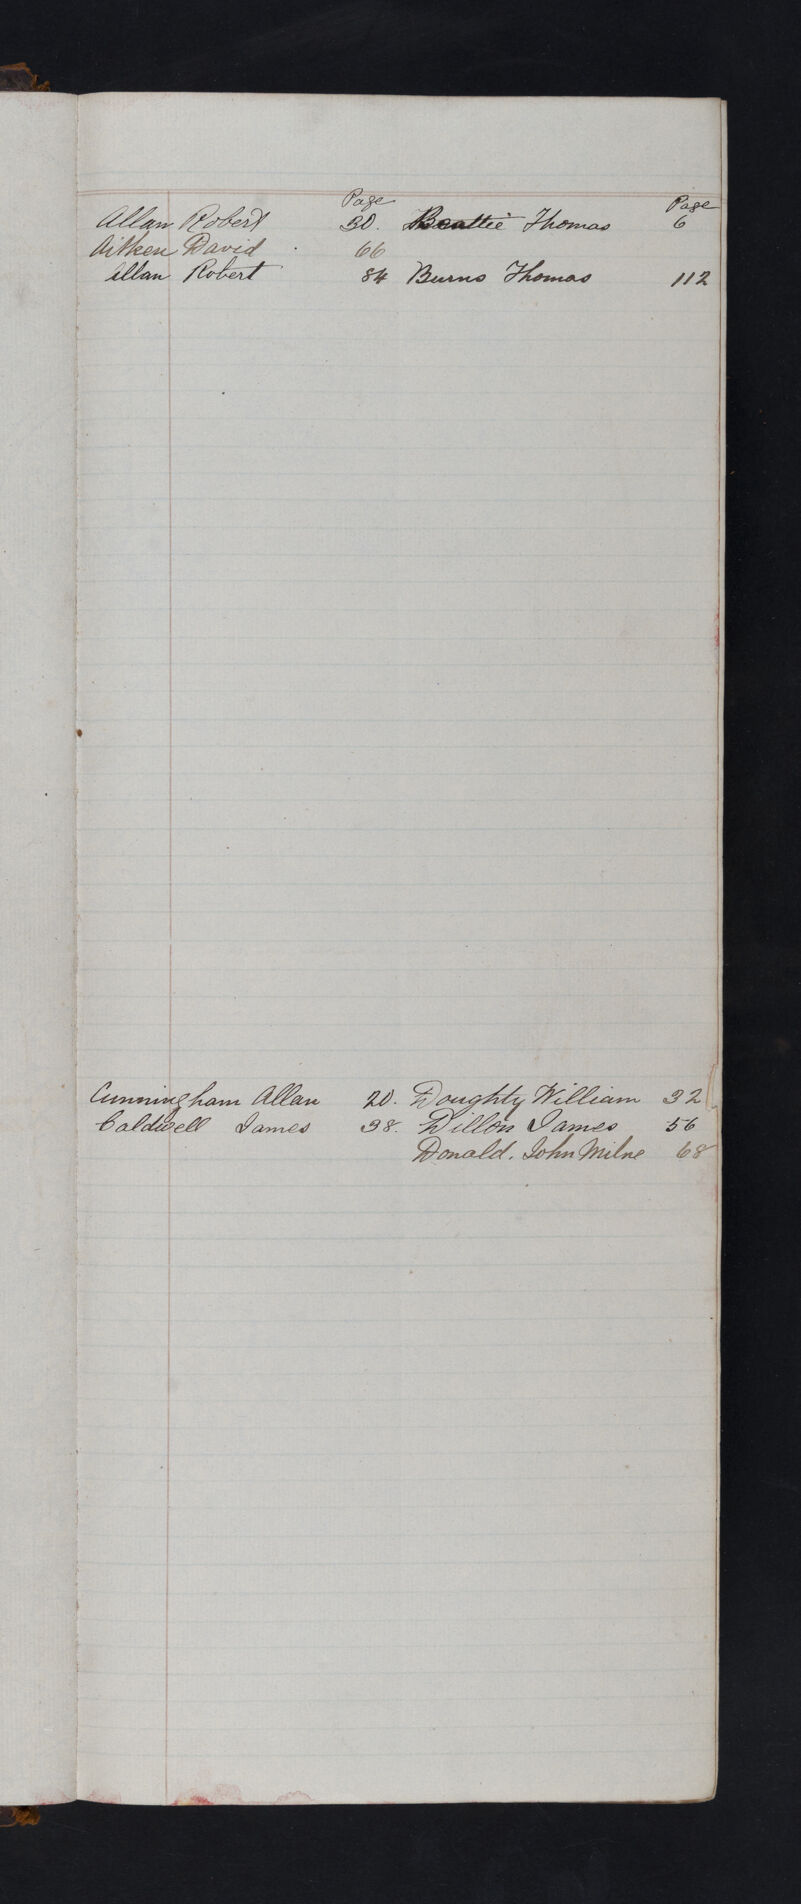 Page Page
Allan Robert 30. Beattie Thomas 6
Aitken David . 66
Allan Robert 84 Burns Thomas 112
Cunningham Allan 20. Doughty William 32
Caldwell James 38. Dillon James 56
Donald. John Milne 68